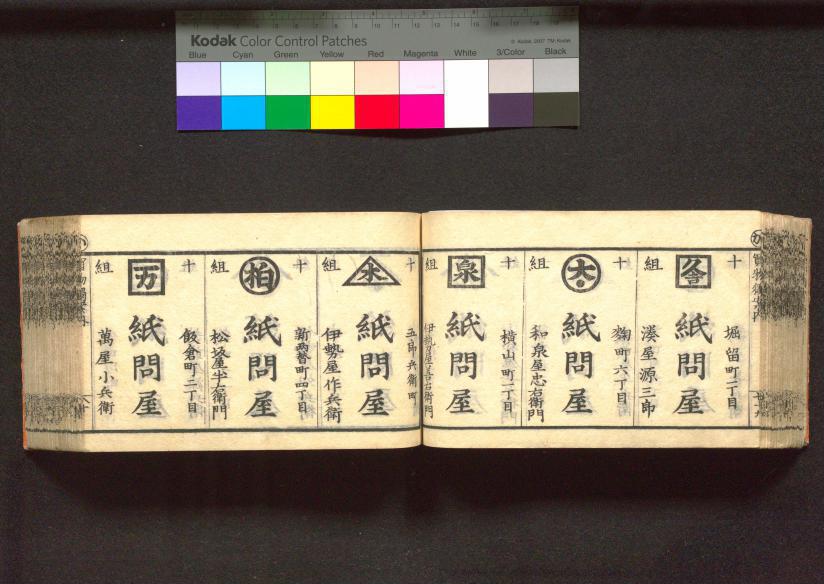 Kodak Color Control Patches
© Kodak, 2007 TM: Kodak
Blue Cyan Green Yellow Red Magenta White 3/Color Black
十 組
堀留町二丁目
紙問屋
湊屋源三郎
大
十 組
麹町六丁目
紙問屋
和泉屋忠右衛門
泉
十 組
横山町二丁目
紙問屋
伊勢屋善右衛門
十 組
五郎兵衛町
紙問屋
伊勢屋作兵衛
柏
十 組
新両替町四丁目
紙問屋
松坂屋半右衛門
万
十 組
飯倉町二丁目
紙問屋
萬屋小兵衛